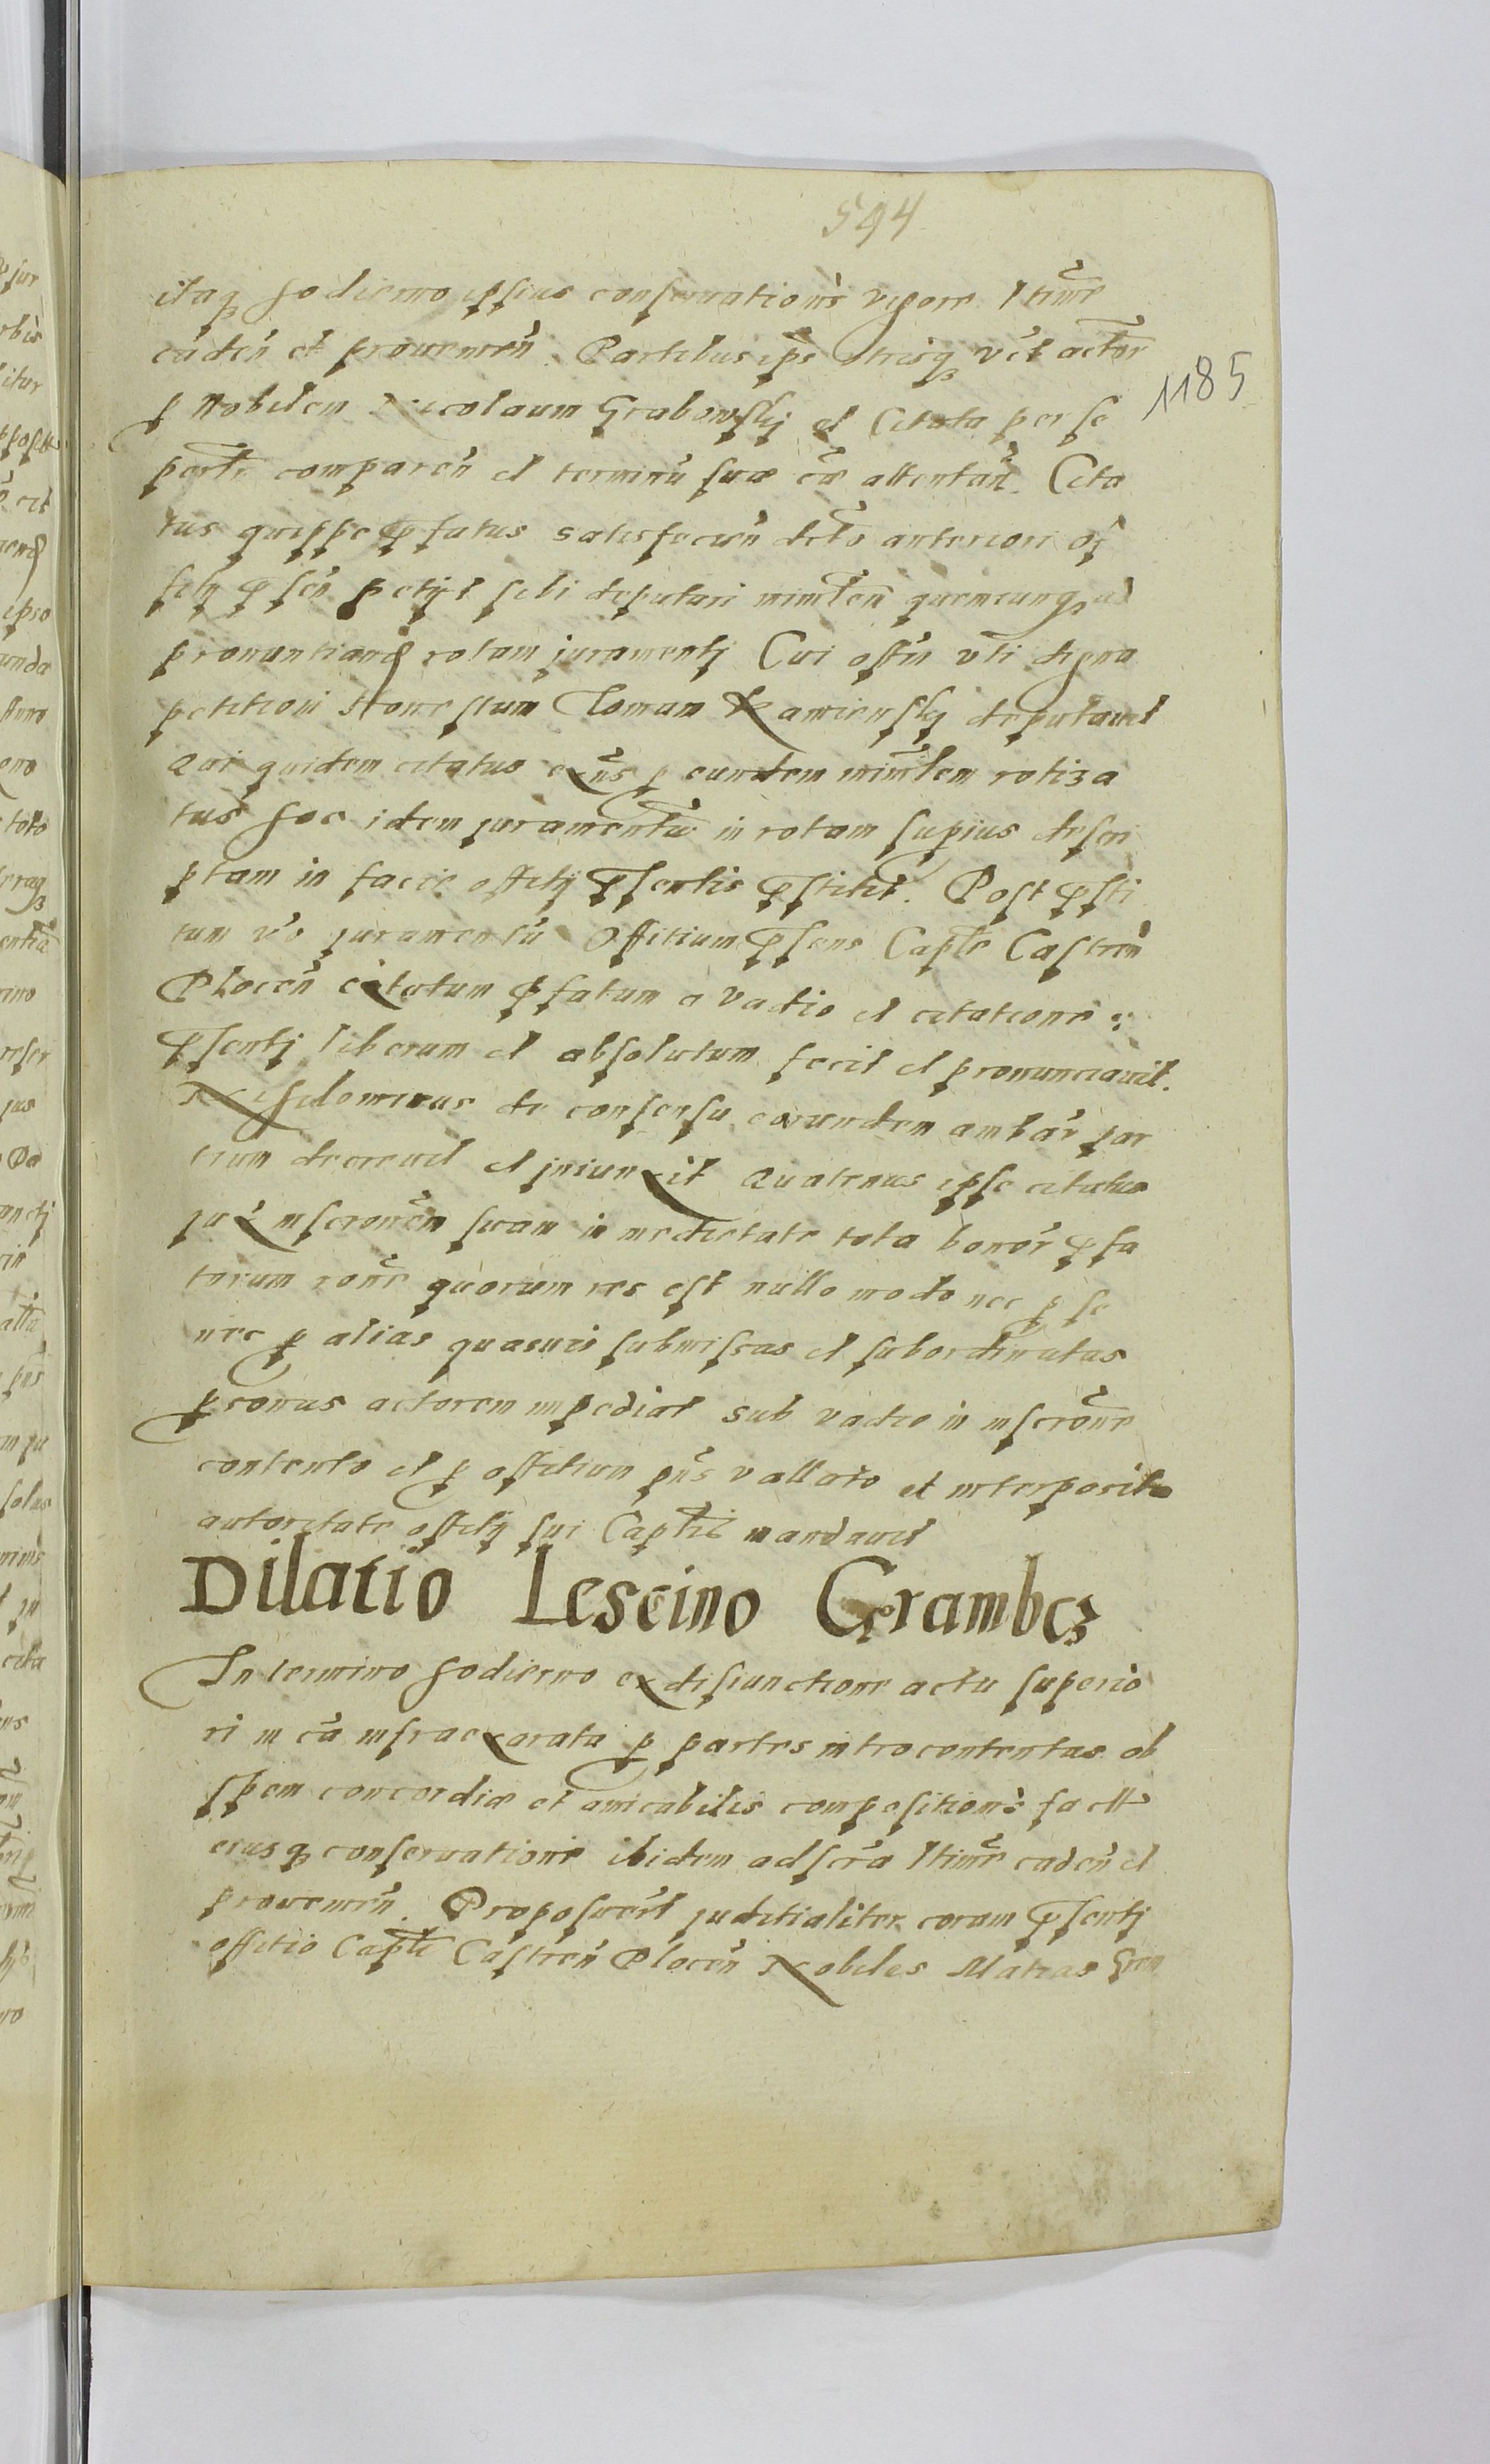 594
1185
itaq hodierno ipsius conservationis vigore ltime
caden et provenien. Partibus ips utrisq vĩt actor
p Nobilem Nicolaum Grabowskj et Citata per se
perlr comparen et terminũ suæ cæ attentañ. Cita
tus quippe p̃fatus satisfacien dctо anteriori of
ficij p̃sen petijt sibi deputari minrlem quemcunq ad
pronuntiand rotam juramentj Cui offm vti digna
petitioni Honestum Tomam Kamienskj deputavit
Qui quidem citatus exñs p eundem minrlem rotiza
tus hoc idem juramentũ in rotam supius descri
ptam in facie officij p̃sentis p̃stitit. Post p̃sti
tum vo juramentũ Offitium p̃sens Caple Castren
Plocen citatum p̃fatum a vadio et citatione
p̃sentj liberum et absolutum fecit et pronunciavit.
Nihilominus de consensu eorundem ambar par
tium decrevit et iniunxit Quatenus ipse citatus
juxᵃ inscrionem suam in medietate tota bonor p̃fa
torum rone quorum res est nullo modo nec p se
nec p alias quasuis submissas et subordinatas
psonas actorem impediat sub vadio in inscrone
contento et p offitium pñs vallato et interposito
autoritate officij sui Caplis mandavit
Dilatio Lescino Grambcz
In termino hodierno ex disiunctione actu superio
ri in cã infra exarata p partes introcontentas ob
spem concordiæ et amicabilis compositionis fact
eiusq conservatione ibidem adscra ltime caden et
provenien. Proposuert juditialiter coram p̃sentj
offitio Caplī Castren Plocen Nobiles Matias Gram